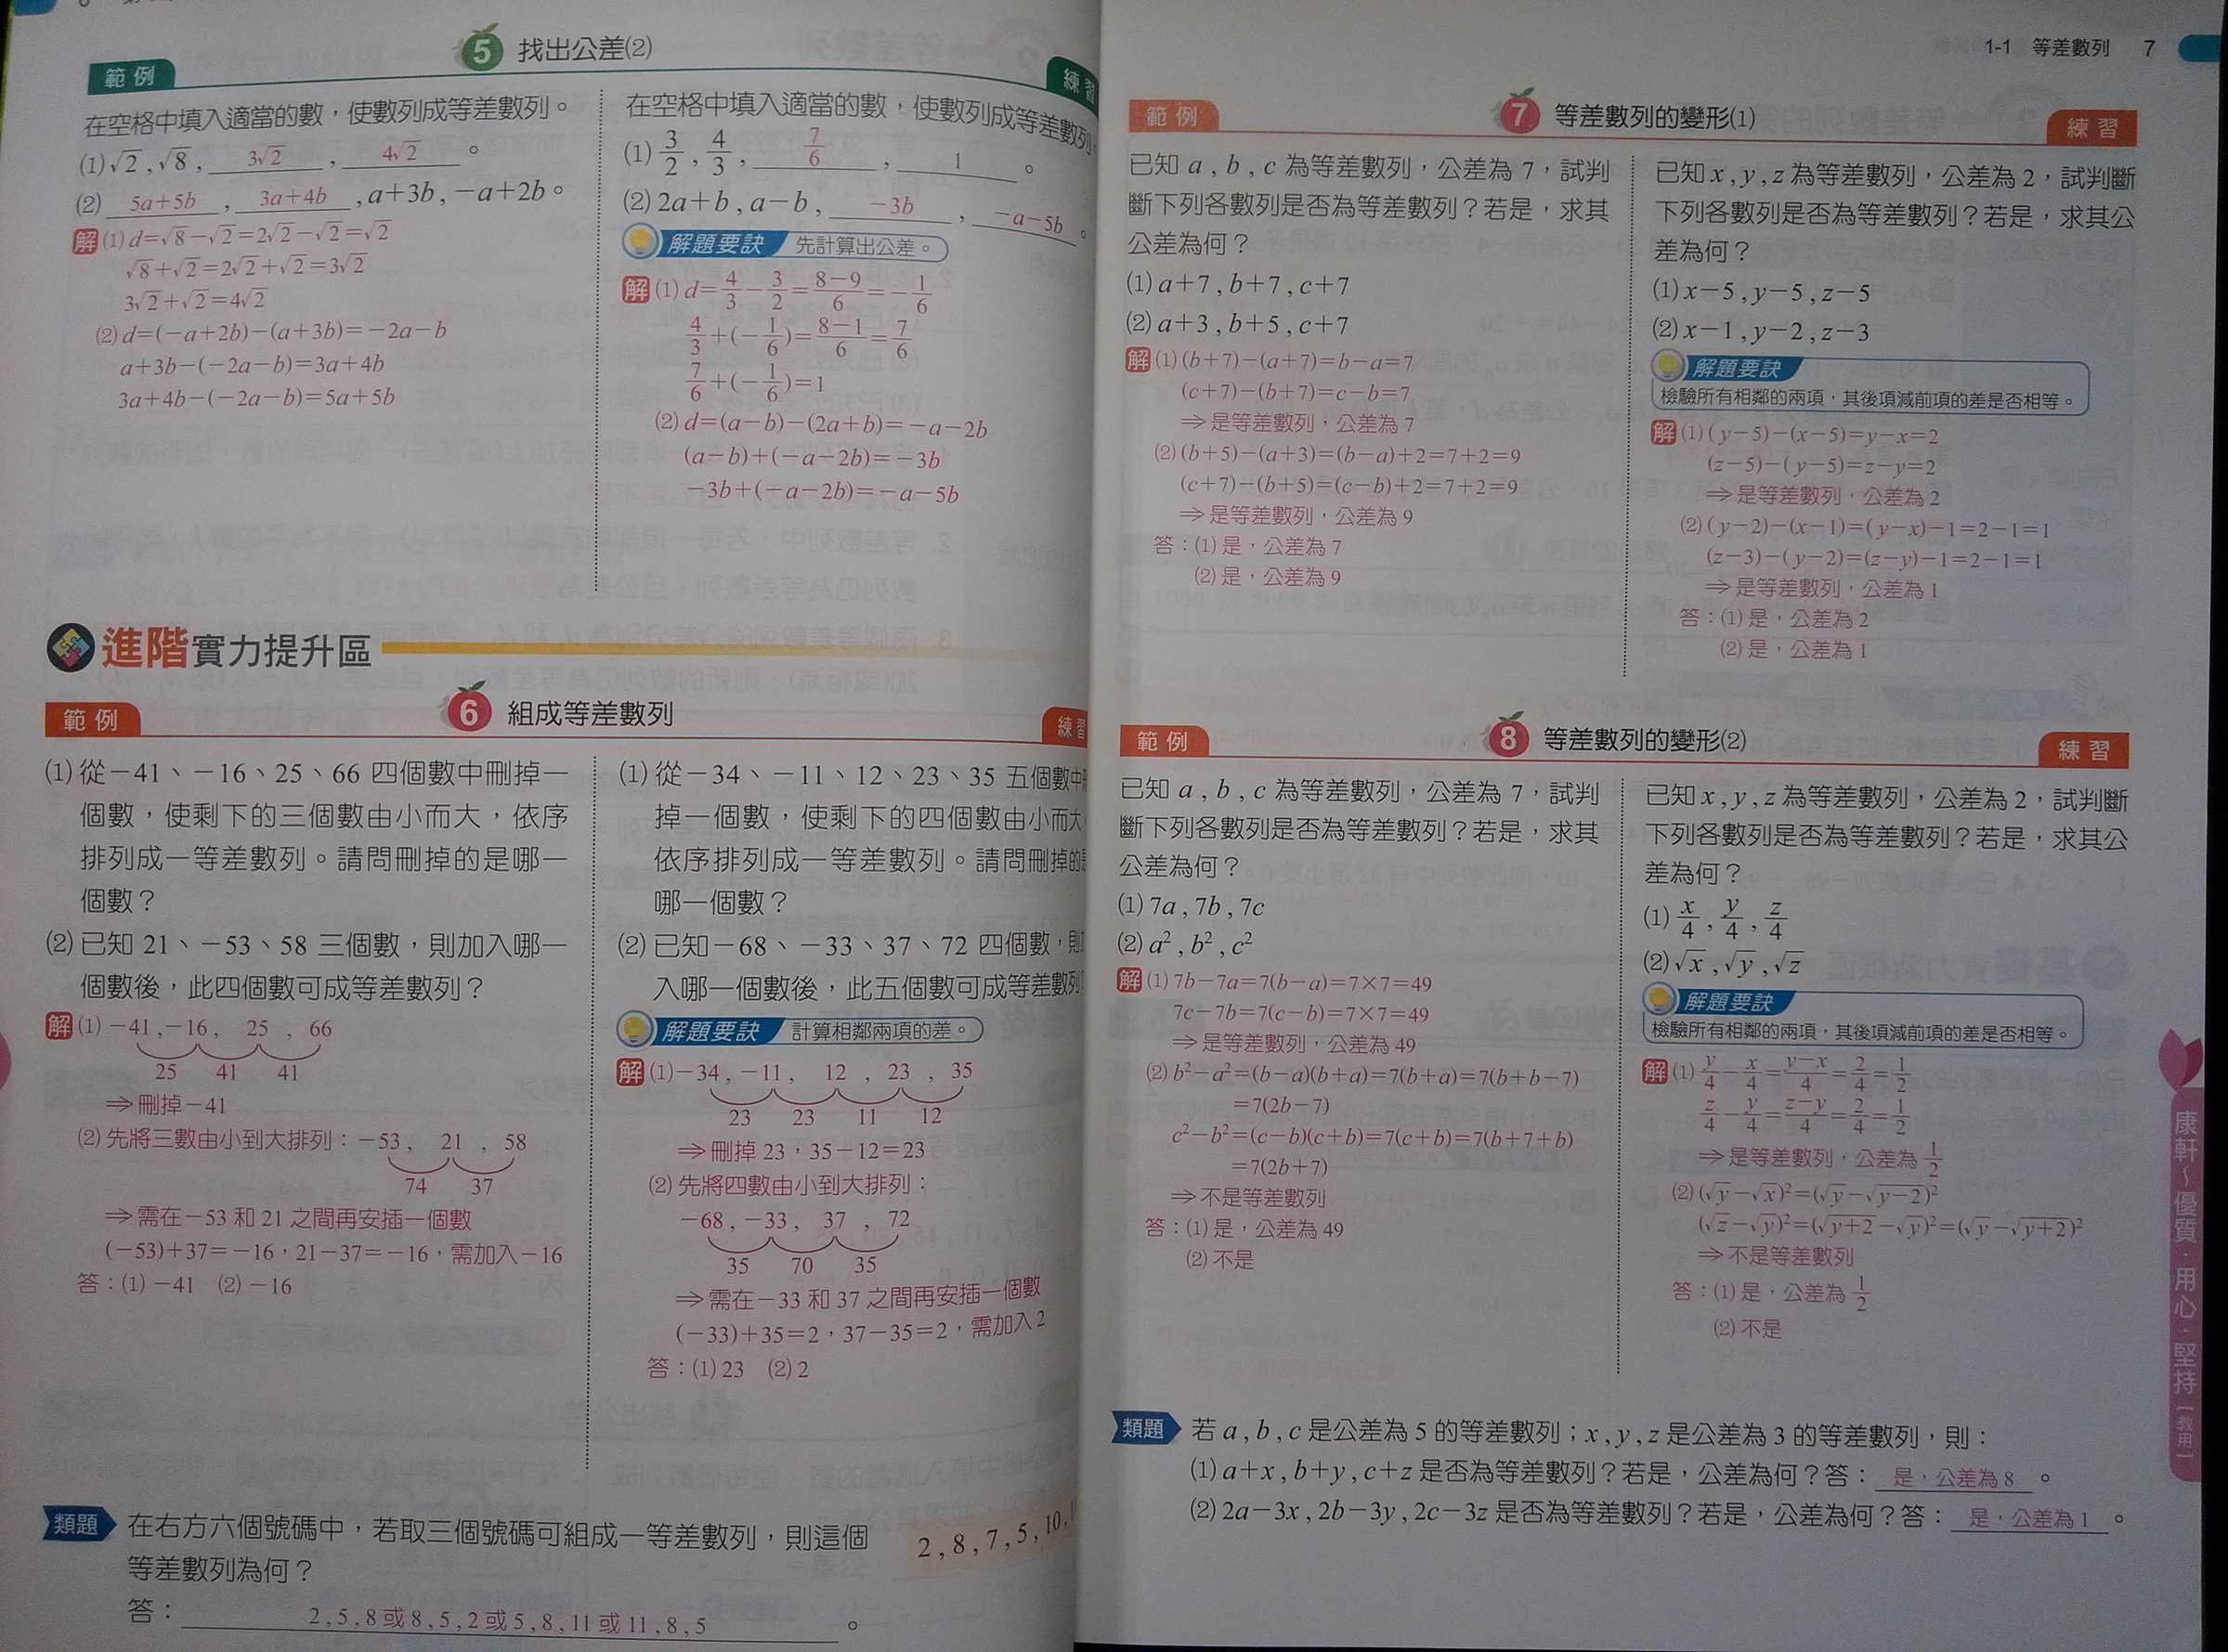 5 找出公差(2)
範例
練習
在空格中填入適當的數，使數列成等差數列。
(1)√2 , √8 , 3√2 , 4√2 。
(2) 5a+5b , 3a+4b , a+3b , −a+2b。
解 (1) d=√8−√2=2√2−√2=√2
√8+√2=2√2+√2=3√2
3√2+√2=4√2
(2) d=(−a+2b)−(a+3b)=−2a−b
a+3b−(−2a−b)=3a+4b
3a+4b−(−2a−b)=5a+5b
在空格中填入適當的數，使數列成等差數列。
(1) 3/2 , 4/3 , 7/6 , 1 。
(2) 2a+b , a−b , −3b , −a−5b 。
解題要訣 先計算出公差。
解 (1) d=4/3−3/2=(8−9)/6=−1/6
4/3+(−1/6)=(8−1)/6=7/6
7/6+(−1/6)=1
(2) d=(a−b)−(2a+b)=−a−2b
(a−b)+(−a−2b)=−3b
−3b+(−a−2b)=−a−5b
進階實力提升區
6 組成等差數列
範例
練習
(1) 從−41、−16、25、66 四個數中刪掉一
個數，使剩下的三個數由小而大，依序
排列成一等差數列。請問刪掉的是哪一
個數？
(2) 已知 21、−53、58 三個數，則加入哪一
個數後，此四個數可成等差數列？
解 (1) −41 , −16 , 25 , 66
25 41 41
⇒ 刪掉−41
(2) 先將三數由小到大排列：−53 , 21 , 58
74 37
⇒ 需在−53 和 21 之間再安插一個數
(−53)+37=−16，21−37=−16，需加入−16
答：(1) −41 (2) −16
(1) 從−34、−11、12、23、35 五個數中刪
掉一個數，使剩下的四個數由小而大，
依序排列成一等差數列。請問刪掉的是
哪一個數？
(2) 已知−68、−33、37、72 四個數，則加
入哪一個數後，此五個數可成等差數列？
解題要訣 計算相鄰兩項的差。
解 (1) −34 , −11 , 12 , 23 , 35
23 23 11 12
⇒ 刪掉 23，35−12=23
(2) 先將四數由小到大排列：
−68 , −33 , 37 , 72
35 70 35
⇒ 需在−33 和 37 之間再安插一個數
(−33)+35=2，37−35=2，需加入 2
答：(1) 23 (2) 2
類題 在右方六個號碼中，若取三個號碼可組成一等差數列，則這個
等差數列為何？
2 , 8 , 7 , 5 , 10 ,
答： 2 , 5 , 8 或 8 , 5 , 2 或 5 , 8 , 11 或 11 , 8 , 5 。
1-1 等差數列 7
7 等差數列的變形(1)
範例
練習
已知 a , b , c 為等差數列，公差為 7，試判
斷下列各數列是否為等差數列？若是，求其
公差為何？
(1) a+7 , b+7 , c+7
(2) a+3 , b+5 , c+7
解 (1) (b+7)−(a+7)=b−a=7
(c+7)−(b+7)=c−b=7
⇒ 是等差數列，公差為 7
(2) (b+5)−(a+3)=(b−a)+2=7+2=9
(c+7)−(b+5)=(c−b)+2=7+2=9
⇒ 是等差數列，公差為 9
答：(1) 是，公差為 7
(2) 是，公差為 9
已知 x , y , z 為等差數列，公差為 2，試判斷
下列各數列是否為等差數列？若是，求其公
差為何？
(1) x−5 , y−5 , z−5
(2) x−1 , y−2 , z−3
解題要訣
檢驗所有相鄰的兩項，其後項減前項的差是否相等。
解 (1) (y−5)−(x−5)=y−x=2
(z−5)−(y−5)=z−y=2
⇒ 是等差數列，公差為 2
(2) (y−2)−(x−1)=(y−x)−1=2−1=1
(z−3)−(y−2)=(z−y)−1=2−1=1
⇒ 是等差數列，公差為 1
答：(1) 是，公差為 2
(2) 是，公差為 1
8 等差數列的變形(2)
範例
練習
已知 a , b , c 為等差數列，公差為 7，試判
斷下列各數列是否為等差數列？若是，求其
公差為何？
(1) 7a , 7b , 7c
(2) a² , b² , c²
解 (1) 7b−7a=7(b−a)=7×7=49
7c−7b=7(c−b)=7×7=49
⇒ 是等差數列，公差為 49
(2) b²−a²=(b−a)(b+a)=7(b+a)=7(b+b−7)
=7(2b−7)
c²−b²=(c−b)(c+b)=7(c+b)=7(b+7+b)
=7(2b+7)
⇒ 不是等差數列
答：(1) 是，公差為 49
(2) 不是
已知 x , y , z 為等差數列，公差為 2，試判斷
下列各數列是否為等差數列？若是，求其公
差為何？
(1) x/4 , y/4 , z/4
(2) √x , √y , √z
解題要訣
檢驗所有相鄰的兩項，其後項減前項的差是否相等。
解 (1) y/4−x/4=(y−x)/4=2/4=1/2
z/4−y/4=(z−y)/4=2/4=1/2
⇒ 是等差數列，公差為 1/2
(2) (√y−√x)²=(√y−√(y−2))²
(√z−√y)²=(√(y+2)−√y)²=(√y−√(y+2))²
⇒ 不是等差數列
答：(1) 是，公差為 1/2
(2) 不是
類題 若 a , b , c 是公差為 5 的等差數列；x , y , z 是公差為 3 的等差數列，則：
(1) a+x , b+y , c+z 是否為等差數列？若是，公差為何？答： 是，公差為 8 。
(2) 2a−3x , 2b−3y , 2c−3z 是否為等差數列？若是，公差為何？答： 是，公差為 1 。
康軒～優質．用心．堅持【教用】